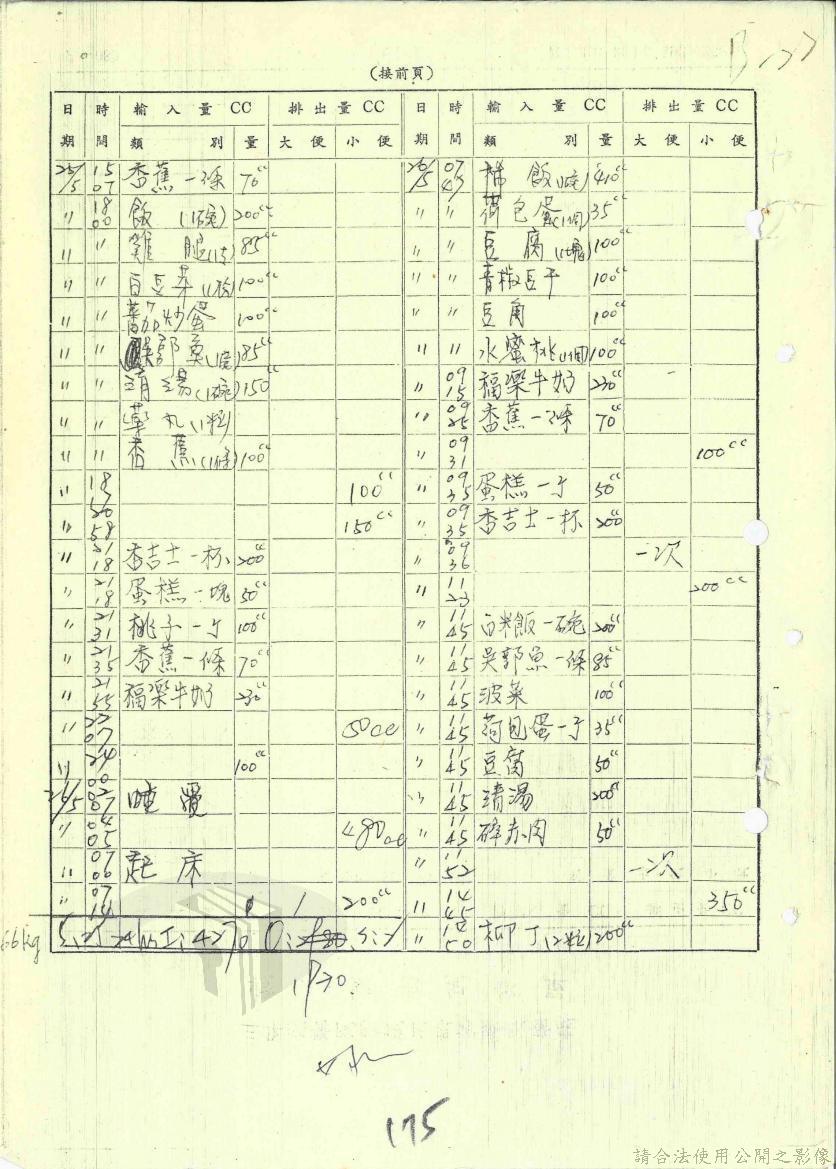 B-77
(接前頁)
日期 時間 輸入量 CC 類別 量 排出量 CC 大便 小便
25/5 15 07 香蕉一條 70cc
〃 18 00 飯(1碗) 200cc
〃 〃 雞腿(1支) 85cc
〃 〃 白豆菜(1份) 100cc
〃 〃 蕃茄炒蛋 100cc
〃 〃 郭魚(1隻) 85cc
〃 〃 清湯(1碗) 150cc
〃 〃 藥丸(1料)
〃 〃 香蕉(1條) 100cc
〃 18 100cc
〃 20 58 150cc
〃 21 18 香吉士一杯 200cc
〃 21 18 蛋糕一塊 50cc
〃 21 31 桃子一个 100cc
〃 21 35 香蕉一條 70cc
〃 21 55 福樂牛奶 230cc
〃 22 07
〃 24 00 100cc
26/5 02 07 睡覺
〃 04 05 480cc
〃 07 06 起床
〃 07 14 200cc
66kg
日期 時間 輸入量 CC 類別 量 排出量 CC 大便 小便
26/5 07 45 稀飯(1碗) 410cc
〃 〃 荷包蛋(1個) 35cc
〃 〃 豆腐(1塊) 100cc
〃 〃 青椒豆干 100cc
〃 〃 豆角 100cc
〃 〃 水蜜桃(1個) 100cc
〃 09 15 福樂牛奶 230cc
〃 09 25 香蕉一條 70cc
〃 09 31 100cc
〃 09 35 蛋糕一个 50cc
〃 09 35 香吉士一杯 200cc
〃 09 36 一次
〃 11 23 200cc
〃 11 45 白米飯一碗 200cc
〃 11 45 吳郭魚一條 85cc
〃 11 45 波菜 100cc
〃 11 45 荷包蛋一个 35cc
〃 11 45 豆腐 50cc
〃 11 45 清湯 200cc
〃 11 45 碎赤肉 50cc
〃 11 52 一次
〃 14 45 350cc
〃 14 50 柳丁(2粒) 200cc
175
請合法使用公開之影像